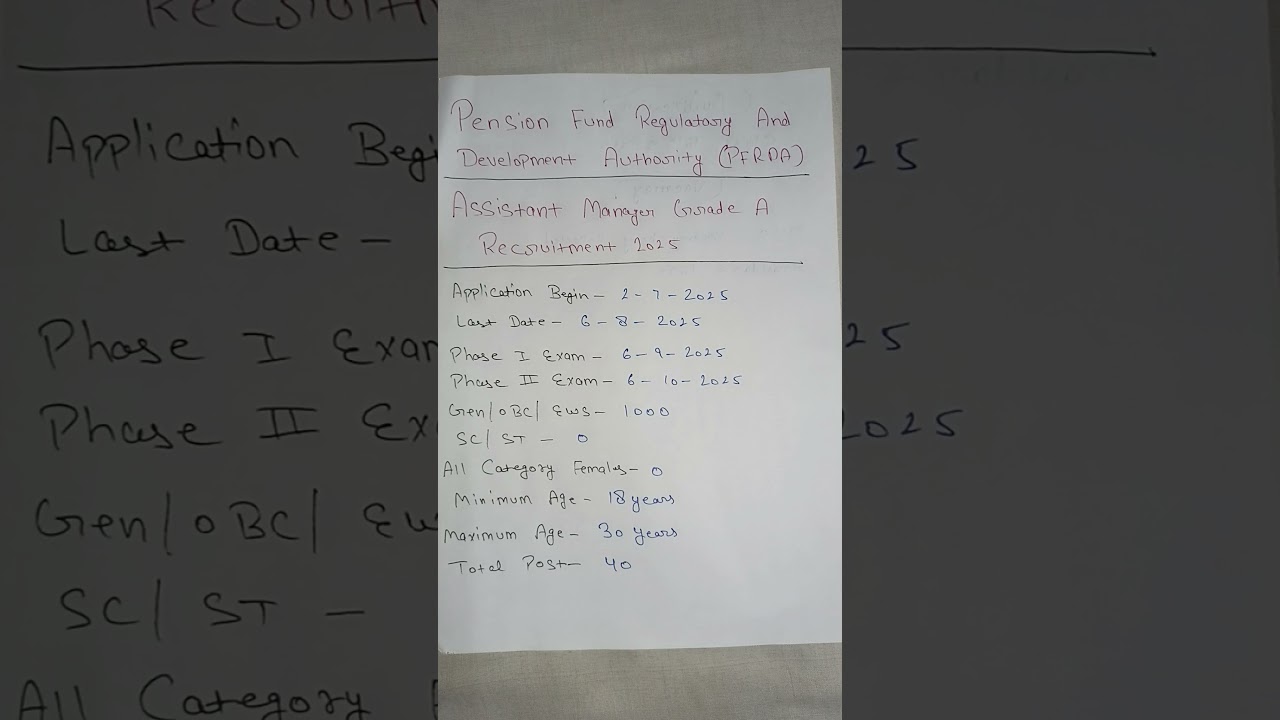 Pension Fund Regulatory And
Development Authority (PFRDA)
Assistant Manager Grade A
Recruitment 2025
Application Begin - 2-7-2025
Last Date - 6-8-2025
Phase I Exam - 6-9-2025
Phase II Exam - 6-10-2025
Gen/OBC/EWS - 1000
SC/ST - 0
All Category Females - 0
Minimum Age - 18 years
Maximum Age - 30 years
Total Post - 40